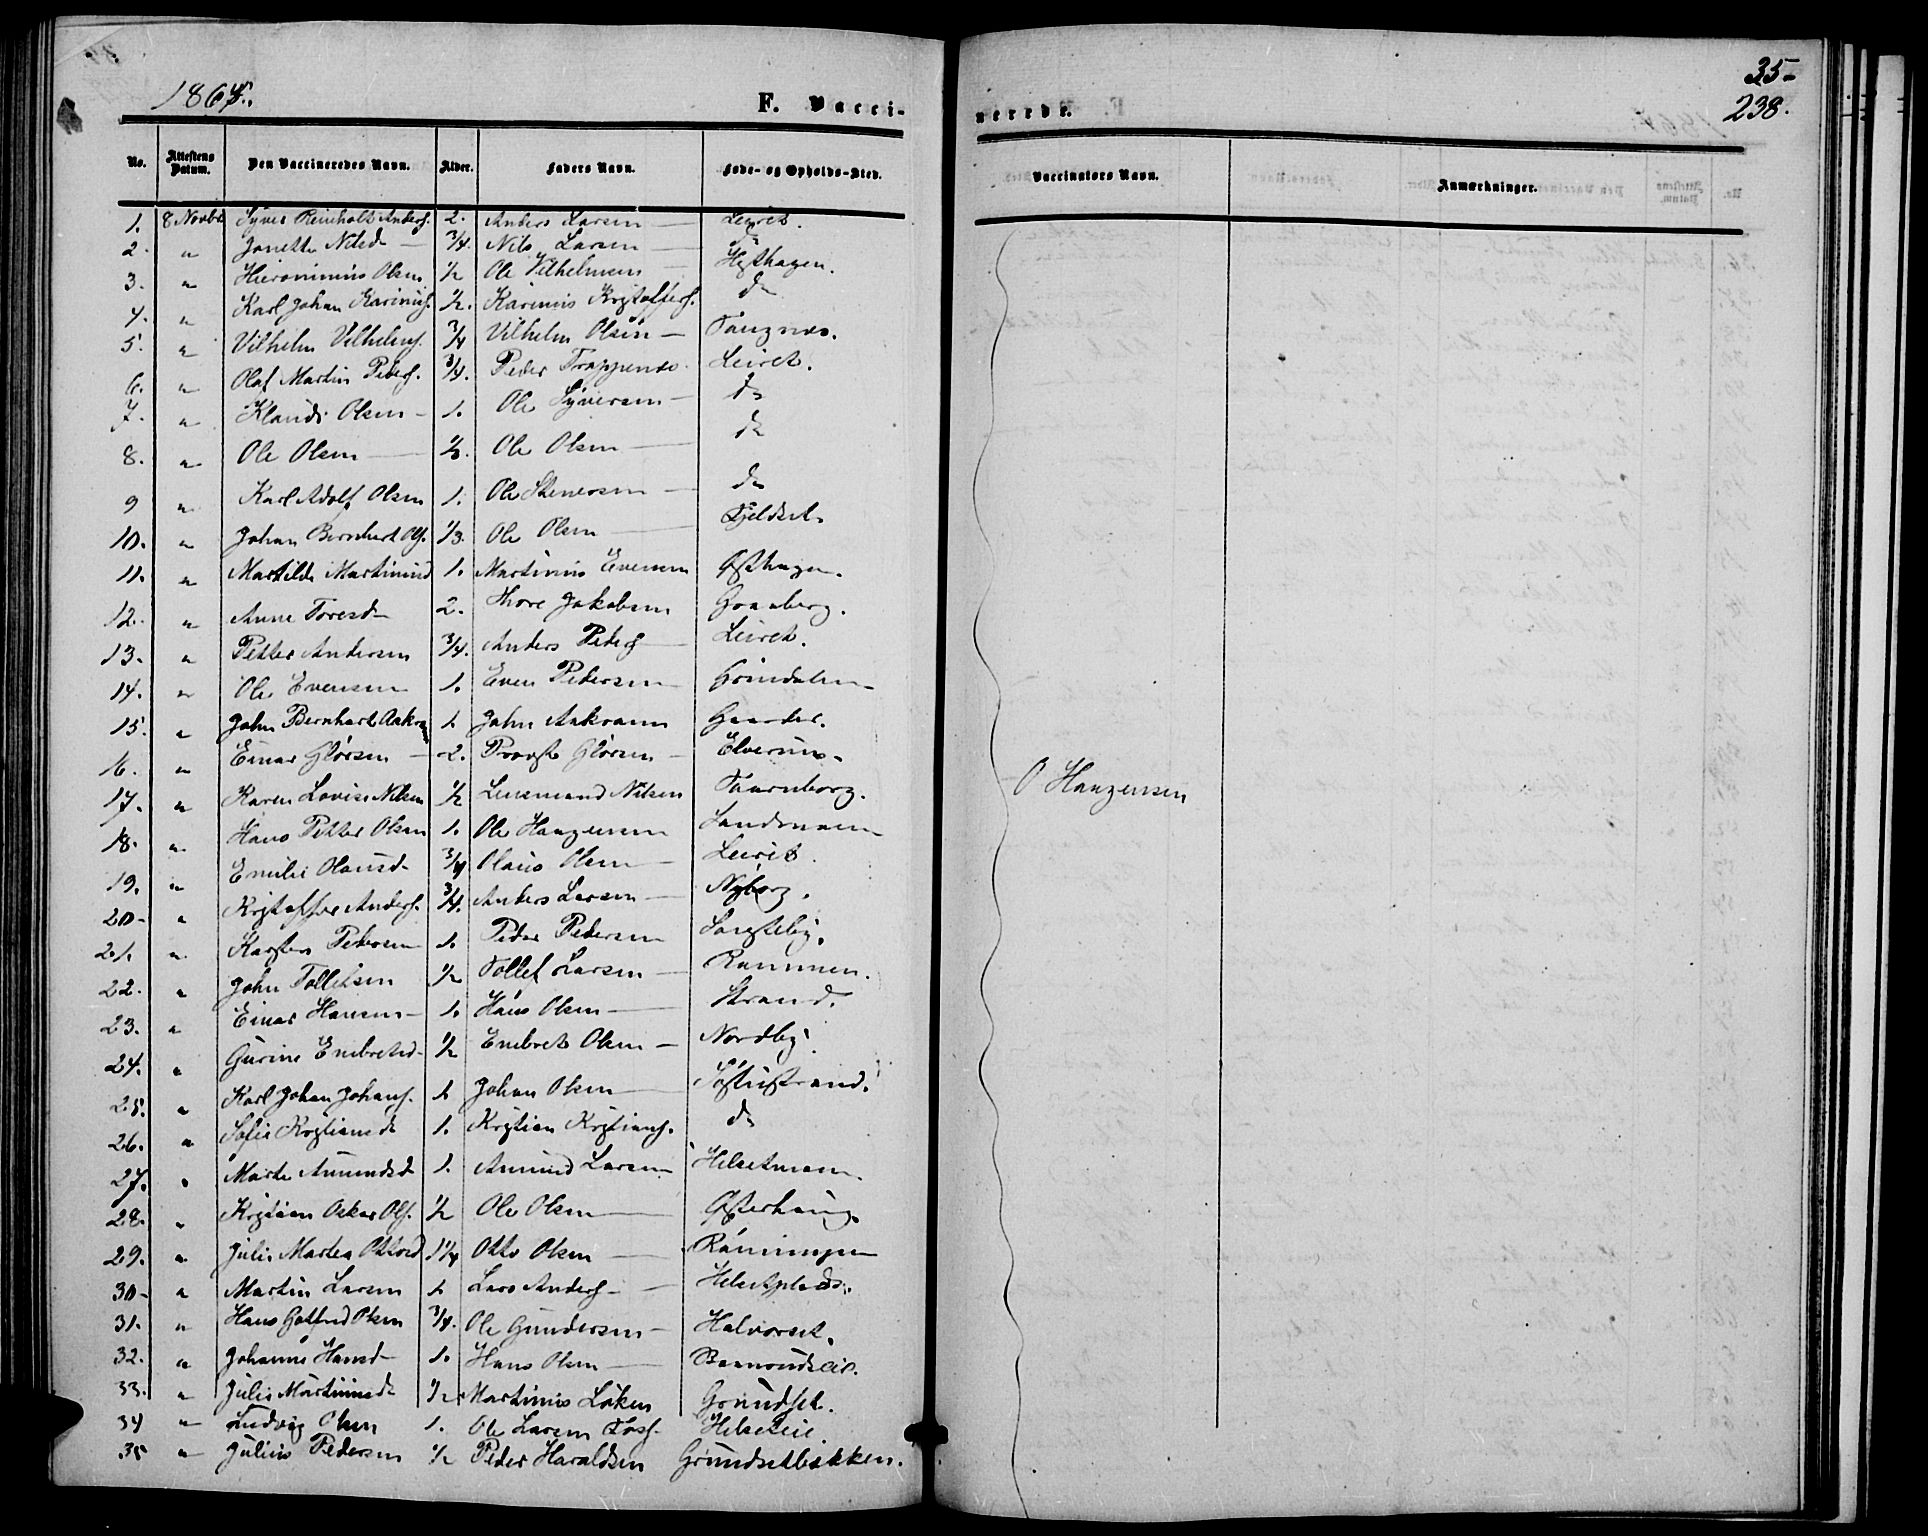 35-
1864.
F. Vacci-
nerede.
238.
No. Attestens Datum. Den Vaccineredes Navn. Alder. Faders Navn. Føde- og Opholds-Sted.
Vaccinatørs Navn. Anmærkninger.
1. 8 Novbr Syver Reinholt Anders. 2. Anders Larsen Leiret.
2. " Janette Nilsd 3/4. Nils Larsen do
3. " Hieronimus Olsen 1/2 Ole Vilhelmsen
4. " Karl Johan Karinius. 1/2. Karinius Kristoffers. do
5. " Vilhelm Vilhelms. 3/4 Vilhelm Olsen
6. " Olaf Martin Peders. 3/4. Peder Trappenes. Leiret.
7. " Klaudi Olsen 1. Ole Syversen do
8. " Ole Olsen Ole Olsen do
9 " Karl Adolf Olsen 1. Ole Stenersen do
10. " Johan Bernhert Ols. 1/3. Ole Olsen Fjeldset
11. " Martilde Martiniusd 1. Martinius Evensen Østhagen.
12. " Anne Toresd 2. Thore Jakobsen Grønberg.
13. " Petter Andersen 3/4. Anders Peders Leiret.
14. " Ole Evensen 1. Even Pedersen Grindalen
15. " John Bernhart Aakra 1 John Aakrann Gaarder.
16. " Einar Glørsen 2. Provst Glørsen Elverum.
17. " Karen Lovise Nilsen 1/2 Lensmand Nilsen Taarnborg.
18. " Hans Petter Olsen 1. Ole Haagensen
O Haagensen
19. " Emilie Olausd 3/4 Olaus Olsen Leiret.
20- " Kristoffer Anders. 3/4. Anders Larsen Nyborg.
21. " Karsten Pedersen 1. Peder Pedersen
22. " John Tollefsen 1/2 Tollef Larsen
23. " Einar Hansen 1. Hans Olsen Strand.
24. " Gurine Embretsd 1/2 Embret Olsen Nordby
25. " Karl Johan Johans. 1 Johan Olsen
26. " Sofie Kristiansd 1. Kristian Kristians. do
27. " Marte Amundsd 1. Amund Larsen
28. " Kristian Oskar Ols. 1/2 Ole Olsen Østerhaug
29. " Julie Martea Ottosd 1 1/4 Otto Olsen Rønningen
30- " Martin Larsen 1 Lars Anders Helsetplads.
31. " Hans Gotfred Olsen 3/4. Ole Gundersen Halvorset.
32. " Johanne Hansd 1. Hans Olsen
33. " Julie Martiniusd 1/2 Martinius Løken Grundset.
34 " Ludvig Olsen 1. Ole Larsen Helseteie
35 " Julius Pedersen 1/2 Peder Haraldsen Grundsetbakken.